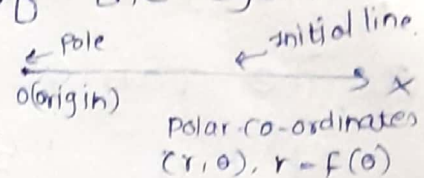 Pole
Initial line.
O(origin)
X
Polar-co-ordinates
(r, θ), r = f(θ)